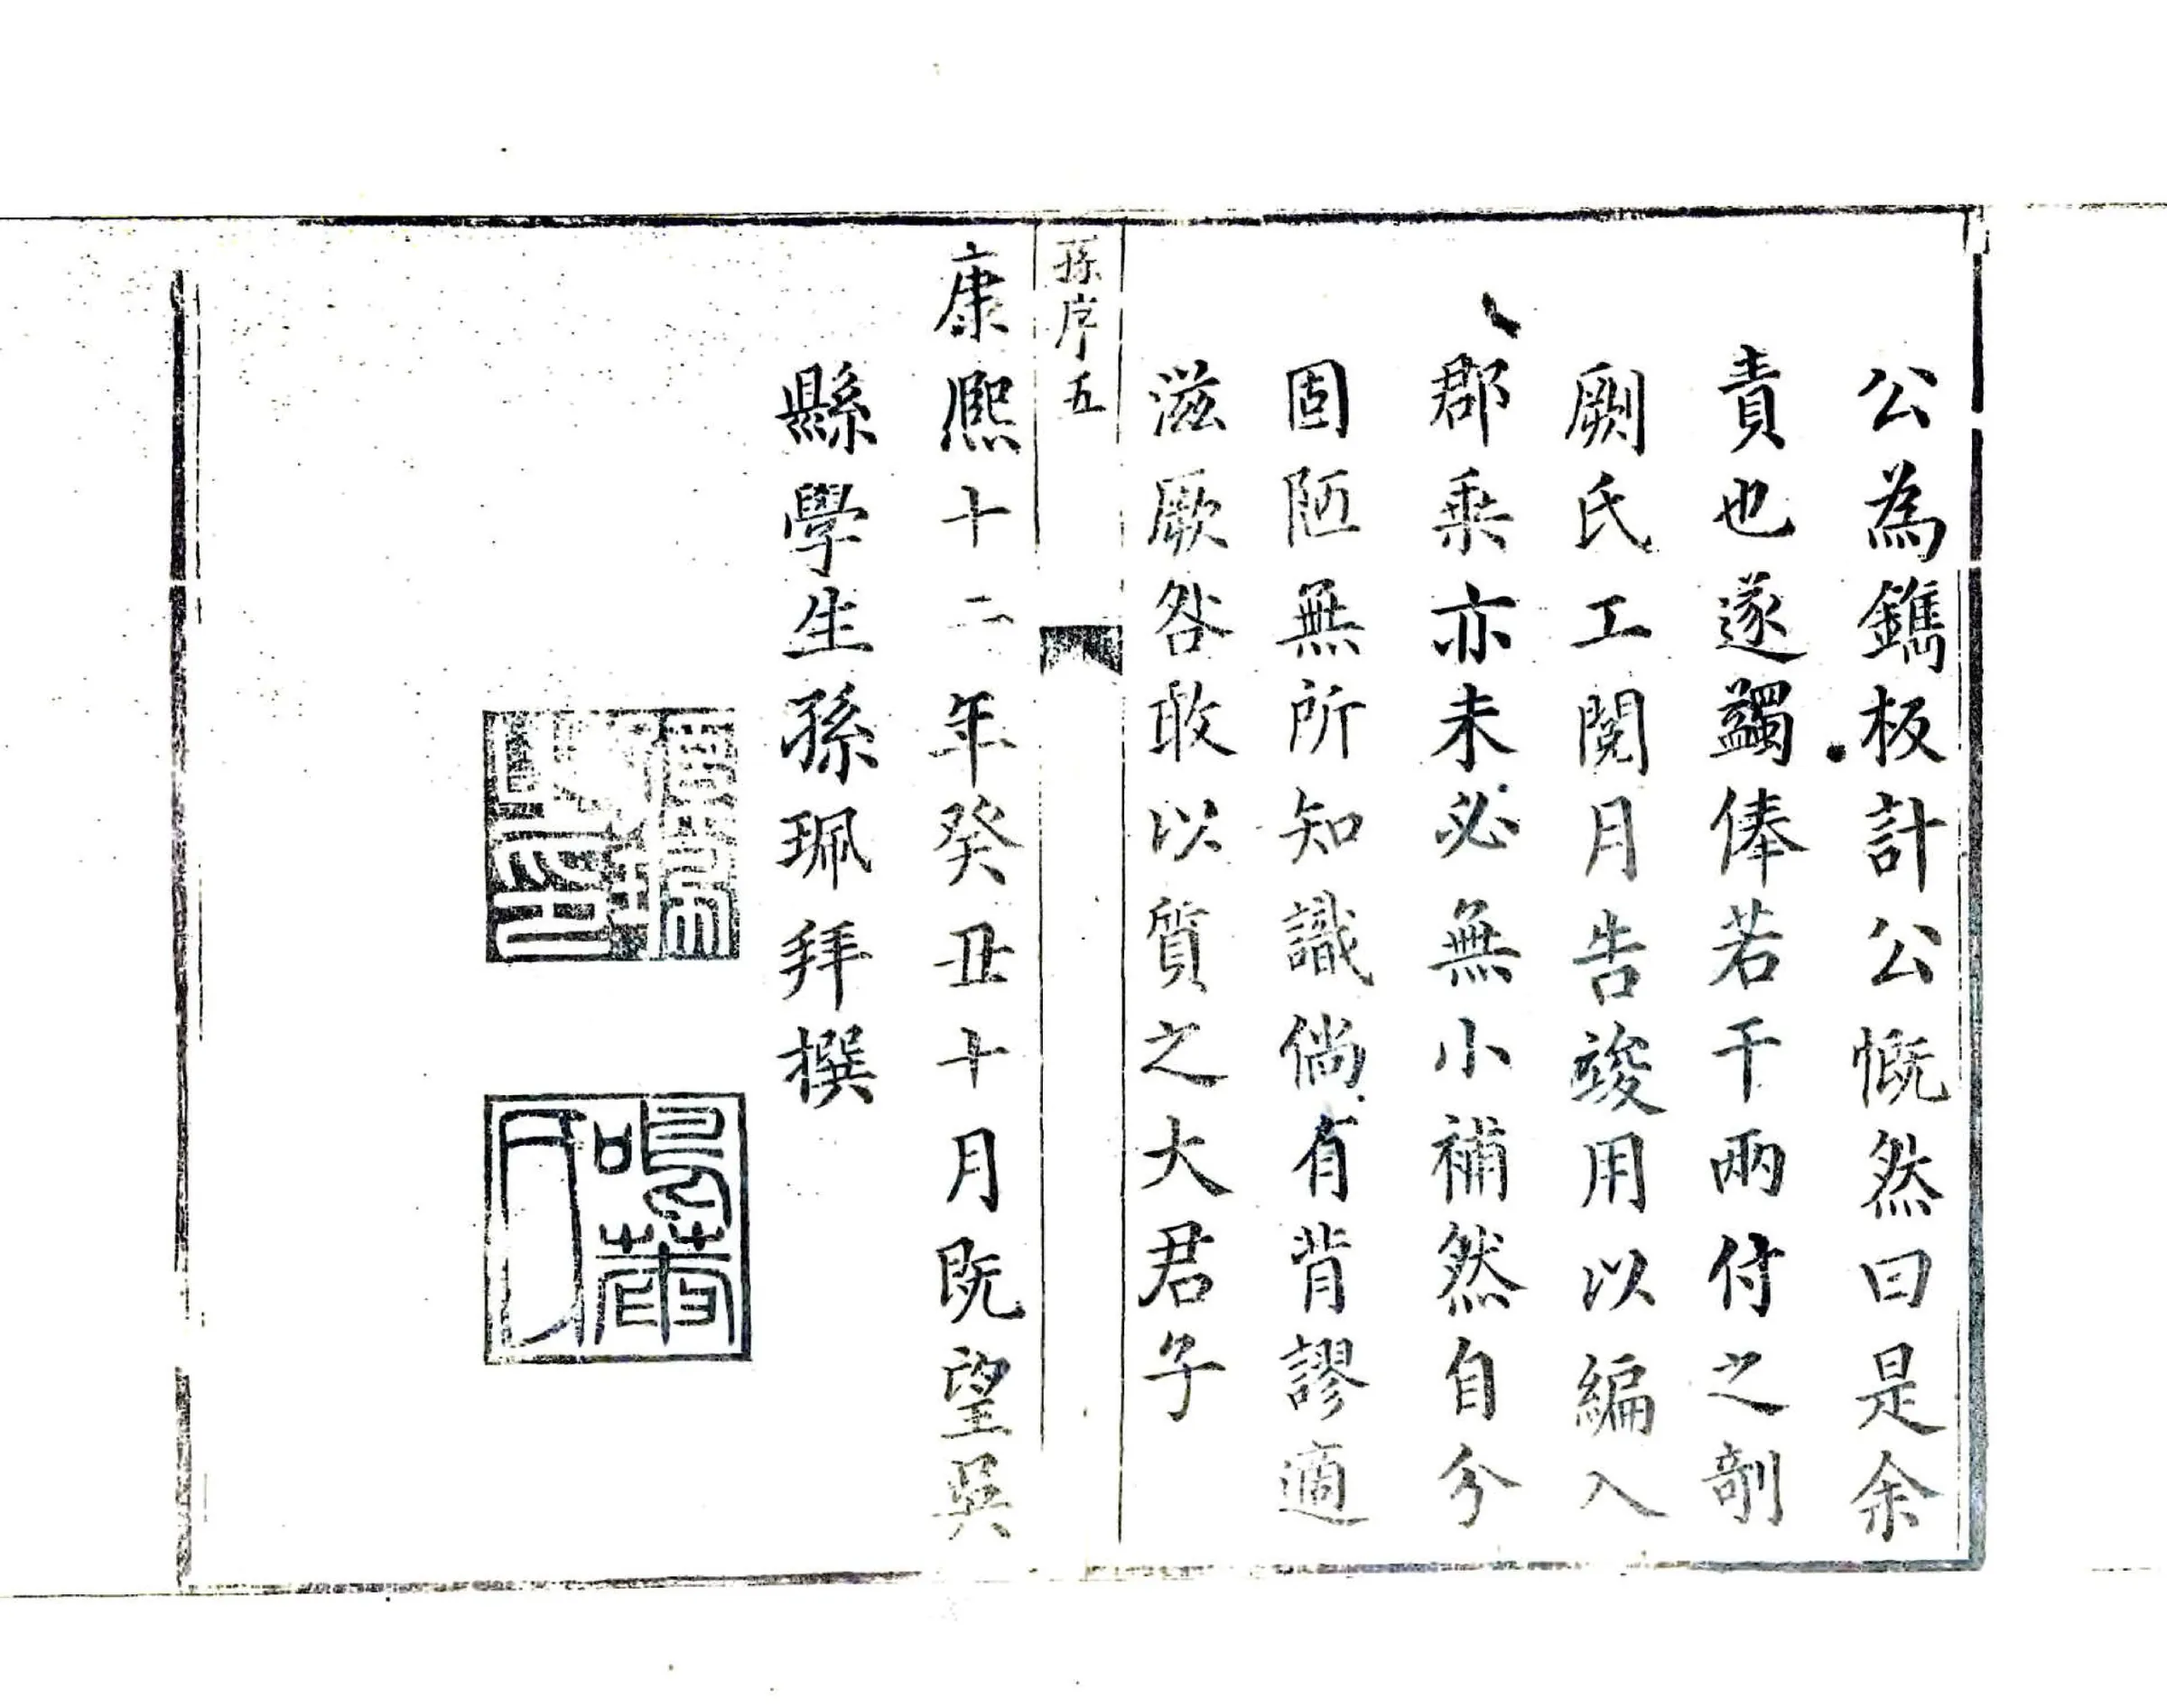 公為鐫板計公慨然曰是余
責也遂蠲俸若干兩付之剞
劂氏工閱月告竣用以編入
郡乘亦未必無小補然自分
固陋無所知識倘有背謬適
滋厥咎敢以質之大君子
孫序 五
康熙十二年癸丑十月既望吳
縣學生孫珮拜撰
孫珮之印